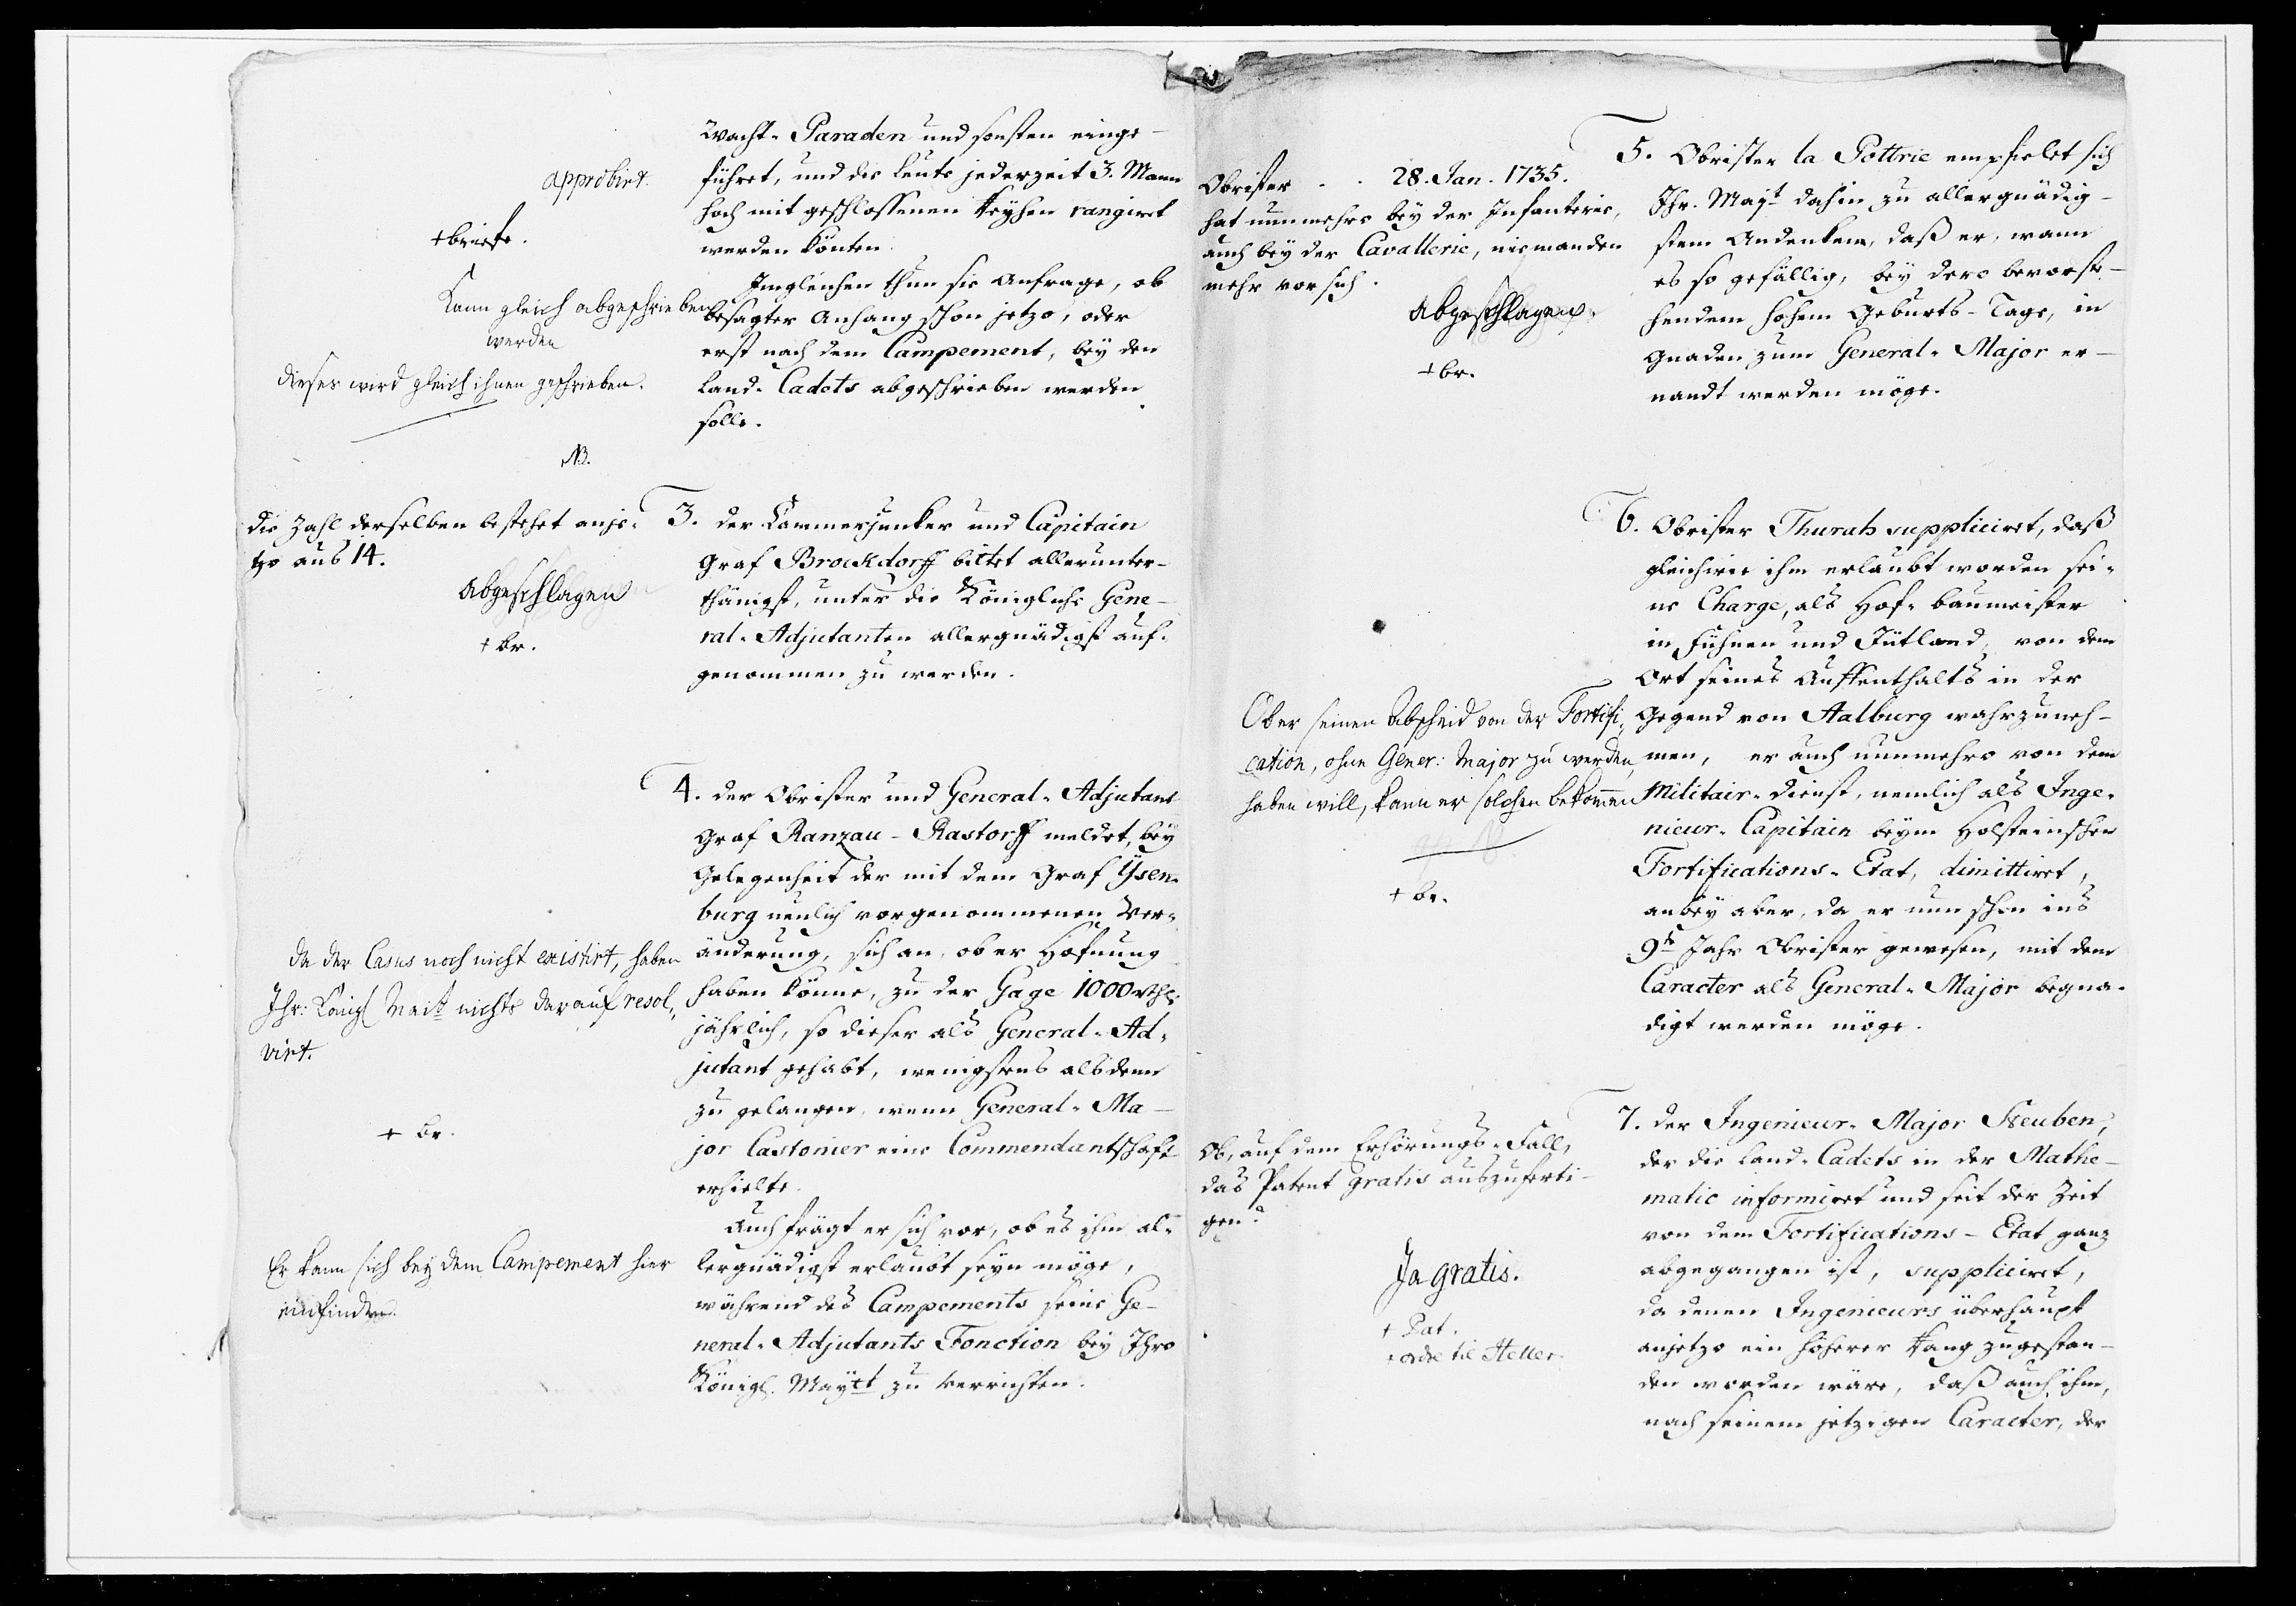 Wacht-Paraden und sonsten einge-
führet, und die Leute jederzeit 3. Mann
hoch mit geschlossenen Reyhen rangiret
werden könten.
approbirt.
+briefe.
Imgleichen thun sie Anfrage, ob
besagter Anhang schon jetzo, oder
erst nach dem Campement, bey den
Land-Cadets abgeschrieben werden
solle.
Kann gleich abgeschrieben
werden
dieses wird gleich ihnen geschrieben.
NB.
3. der Kammerjunker und Capitain
Graf Brockdorff bittet allerunter-
thänigst, unter die Königliche Gene-
ral-Adjutanten allergnädigst auf-
genommen zu werden.
die Zahl derselben bestehet anje-
tzo aus 14.
abgeschlagen
+ br.
4. der Obrister und General-Adjutant
Graf Ranzau-Rastorff meldet, bey
Gelegenheit der mit dem Graf Ysen-
burg neulich vorgenommenen Ver-
änderung, sich an, ob er Hofnung
haben könne, zu der Gage 1000 rthlr
jährlich, so dieser als General-Ad-
jutant gehabt, wenigstens alsdenn
zu gelangen, wenn General-Ma-
jor Castonier eine Commendantschaft
erhielte.
da der Casus noch nicht existirt, haben
Ihr: Königl Mait nichts darauf resol-
virt.
+ br.
Auch frägt er sich vor, ob es ihm al-
lergnädigst erlaubt seyn möge,
während des Campements seine Ge-
neral-Adjutants Fonction bey Ihro
Königl. Maytt zu verrichten.
Er kann sich bey dem Campement hier
einfinden.
5. Obrister la Pottrie empfielet sich
Ihr. Mayt dahin zu allergnädig-
stem Andenken, daß er, wann
es so gefällig, bey dero bevorste-
hendem hohem Geburts-Tage, in
Gnaden zum General-Major er-
nandt werden möge.
Obrister . . 28. Jan. 1735.
hat nunmehro bey der Infanterie,
auch bey der Cavallerie, niemanden
mehr vor sich.
abgeschlagen.
+br.
6. Obrister Thurah suppliciret, daß
gleichwie ihm erlaubt worden sei-
ne Charge, als Hof-baumeister
in Fühnen und Jütland, von dem
Ort seines Auffenthalts in der
Gegend von Aalburg wahrzuneh-
men, er auch nunmehro von dem
Militair-dienst, nemlich als Inge-
nieur-Capitain beym Holsteinschen
Fortifications-Etat, dimittiret,
anbey aber, da er nun schon ins
9te Jahr Obrister gewesen, mit dem
Caracter als General-Major begna-
digt werden möge.
Ob er seinen Abscheid von der Fortifi-
cation, ohne Gener: Major zu werden,
haben will, kann er solchen bekommen
+ br.
7. der Ingenieur-Major Steuben,
der die Land-Cadets in der Mathe-
matic informiret und seit der Zeit
von dem Fortifications-Etat ganz
abgegangen ist, suppliciret,
da denen Ingenieurs überhaupt
anjetzo ein höherer Rang zugestan-
den worden wäre, daß auch ihm,
nach seinem jetzigen Caracter, der
Ob, auf dem Erhörungs-Fall,
das Patent gratis auszuferti-
gen?
Ja gratis.
+ Pat.
+ ordre til Heller.